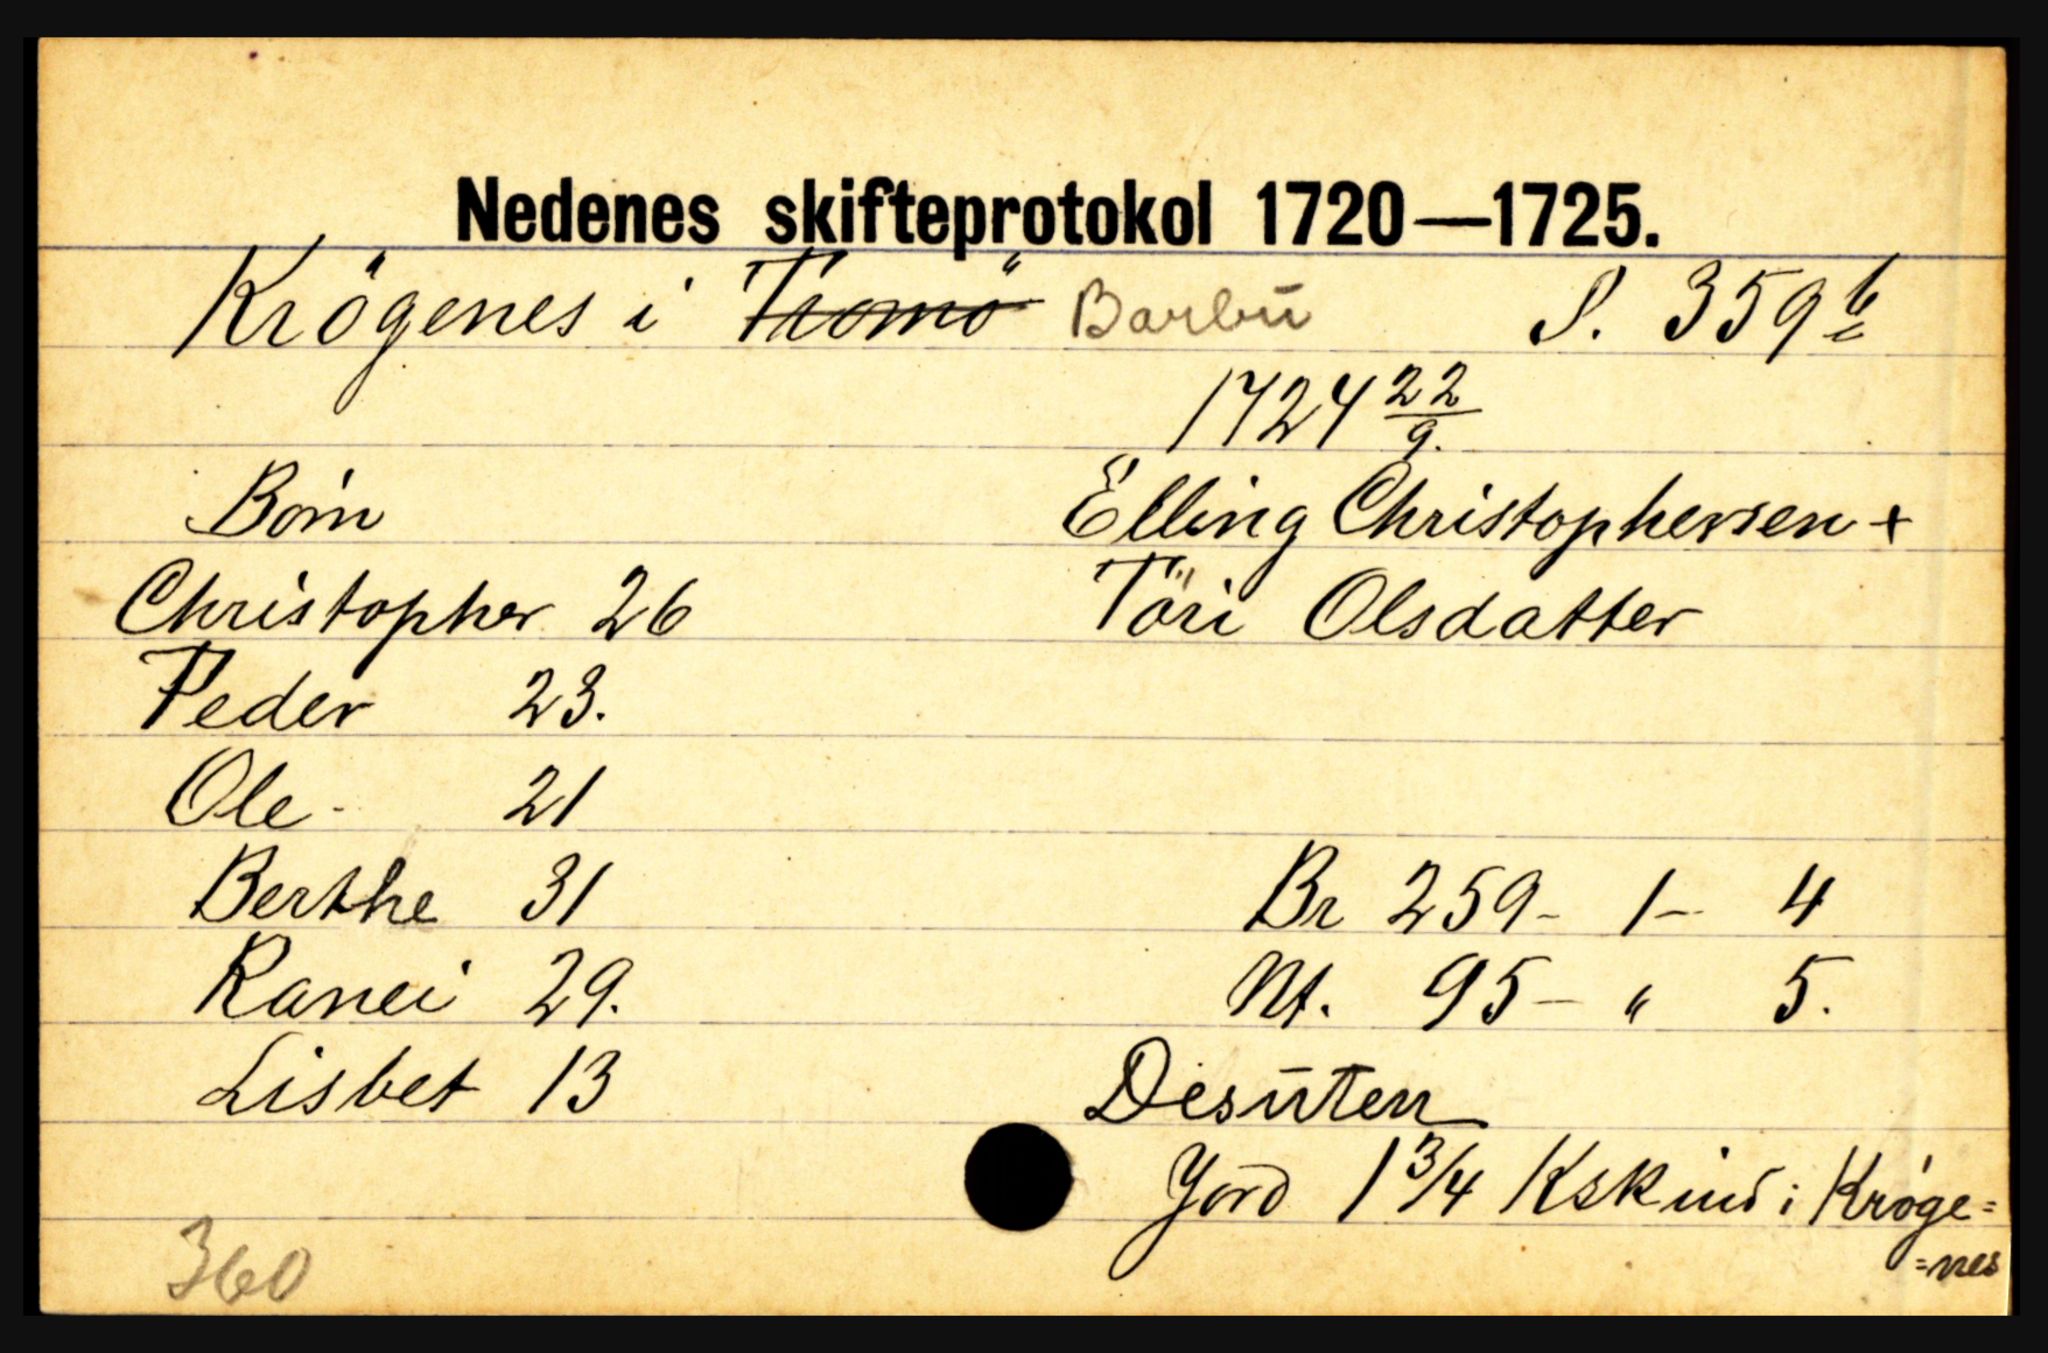 Nedenes skifteprotokol 1720—1725.
Krögenes i ~~Tromö~~ Barbu S. 359 b
1724 22/9.
Börn Elling Christophersen +
Christopher 26 Töri Olsdatter
Peder 23.
Ole - 21
Berthe 31 Br 259 - 1 - 4
Ranei 29. Nt. 95 - " 5.
Lisbet 13 Desuten
Jord 1 3/4 Kskind i Kröge=
=nes
360